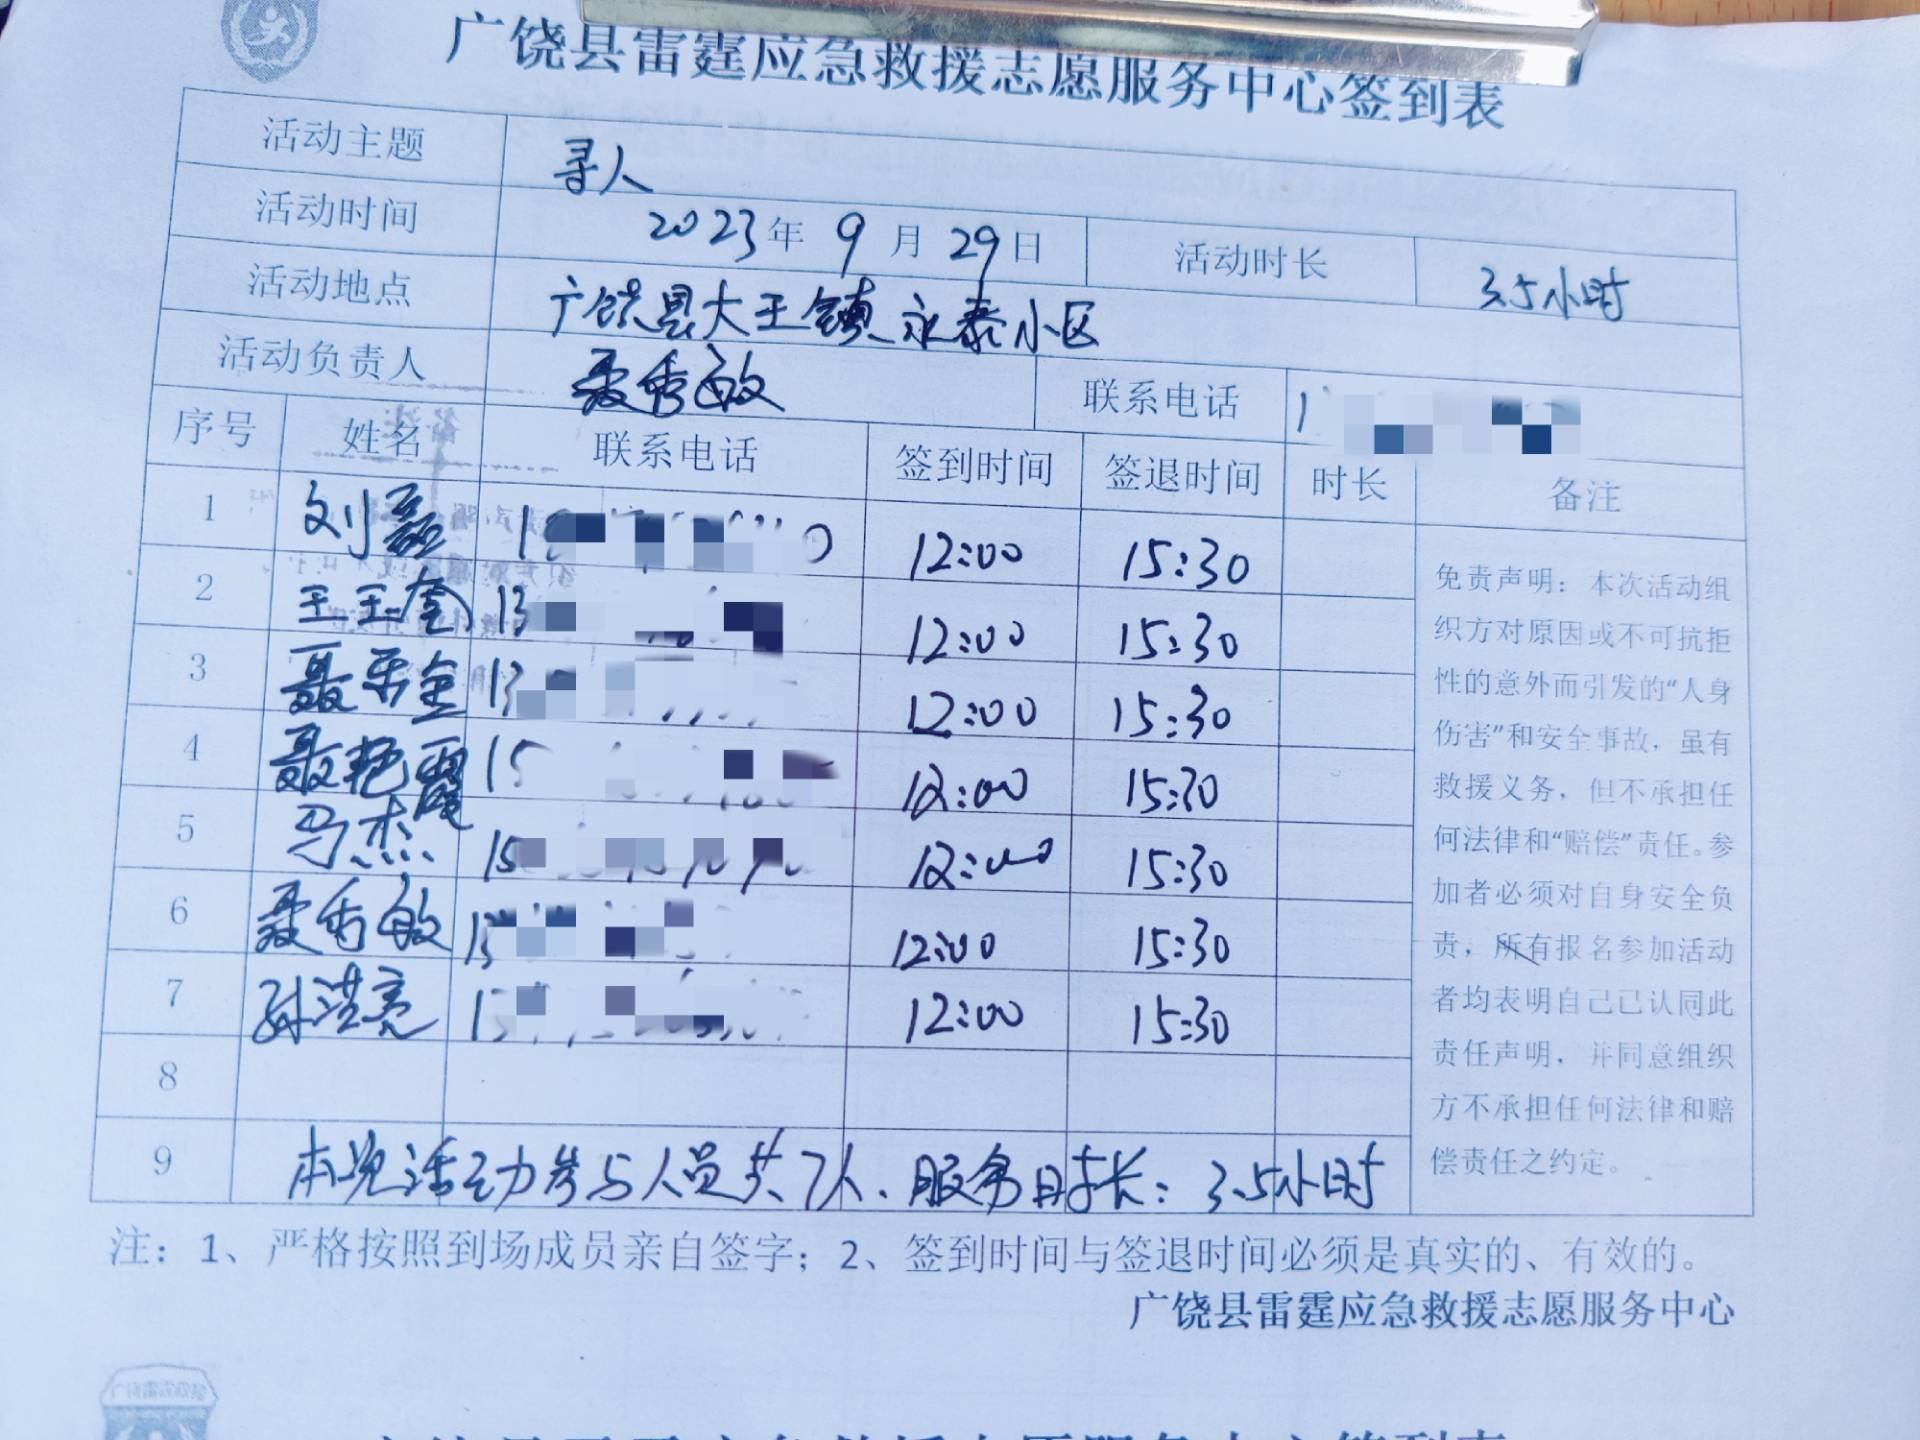 广饶县雷霆应急救援志愿服务中心签到表
活动主题 寻人
活动时间 2023年 9 月 29 日 活动时长 3.5小时
活动地点 广饶县大王镇永泰小区
活动负责人 聂秀敏 联系电话 1
序号 姓名 联系电话 签到时间 签退时间 时长 备注
1 刘磊 1 12:00 15:30
2 王玉奎 13 12:00 15:30
3 聂乐全 13 12:00 15:30
4 聂艳霞 15 12:00 15:30
5 马杰 15 12:00 15:30
6 聂秀敏 13 12:00 15:30
7 孙洪亮 1 12:00 15:30
8
9 本次活动参与人员共7人、服务时长：3.5小时
免责声明：本次活动组
织方对原因或不可抗拒
性的意外而引发的“人身
伤害”和安全事故，虽有
救援义务，但不承担任
何法律和“赔偿”责任。参
加者必须对自身安全负
责，所有报名参加活动
者均表明自己已认同此
责任声明，并同意组织
方不承担任何法律和赔
偿责任之约定。
注：1、严格按照到场成员亲自签字；2、签到时间与签退时间必须是真实的、有效的。
广饶县雷霆应急救援志愿服务中心